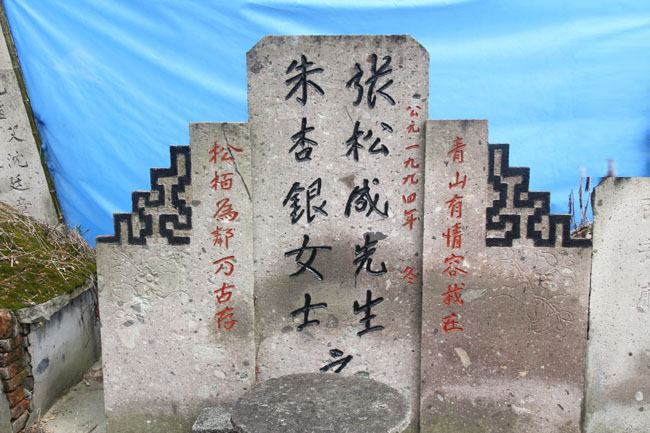 青山有情容我在
公元一九九四年 冬
张松成先生
朱杏銀女士
之
松栢為鄰万古存